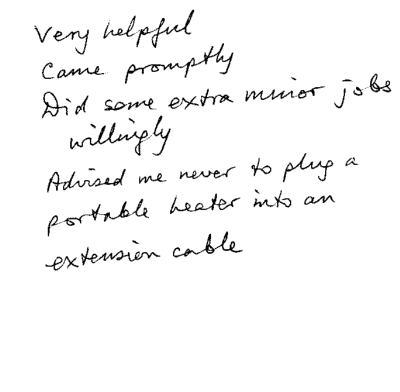 Very helpful
Came promptly
Did some extra minor jobs
willingly
Advised me never to plug a
portable heater into an
extension cable